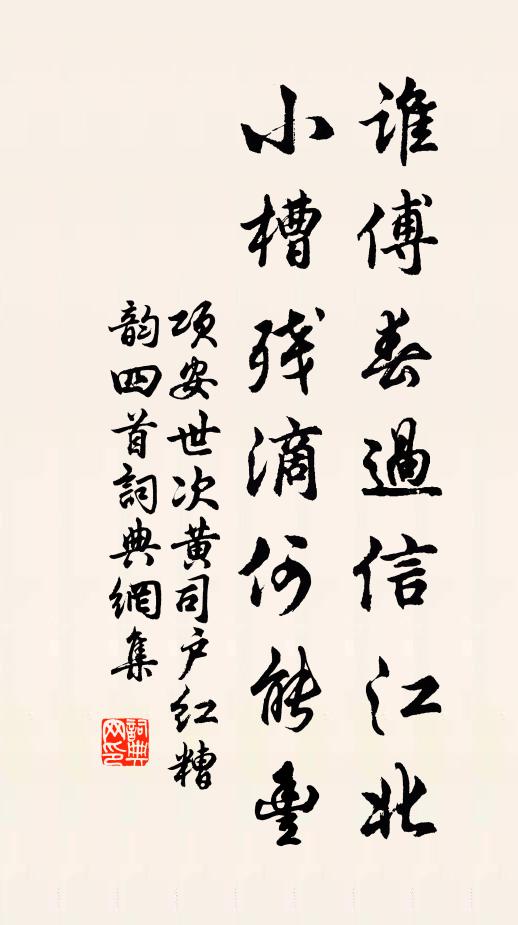 誰傅春過信江北
小槽残滴何能豊
项安世次黄司户红糟
韵四首詞典網集
詞典網印